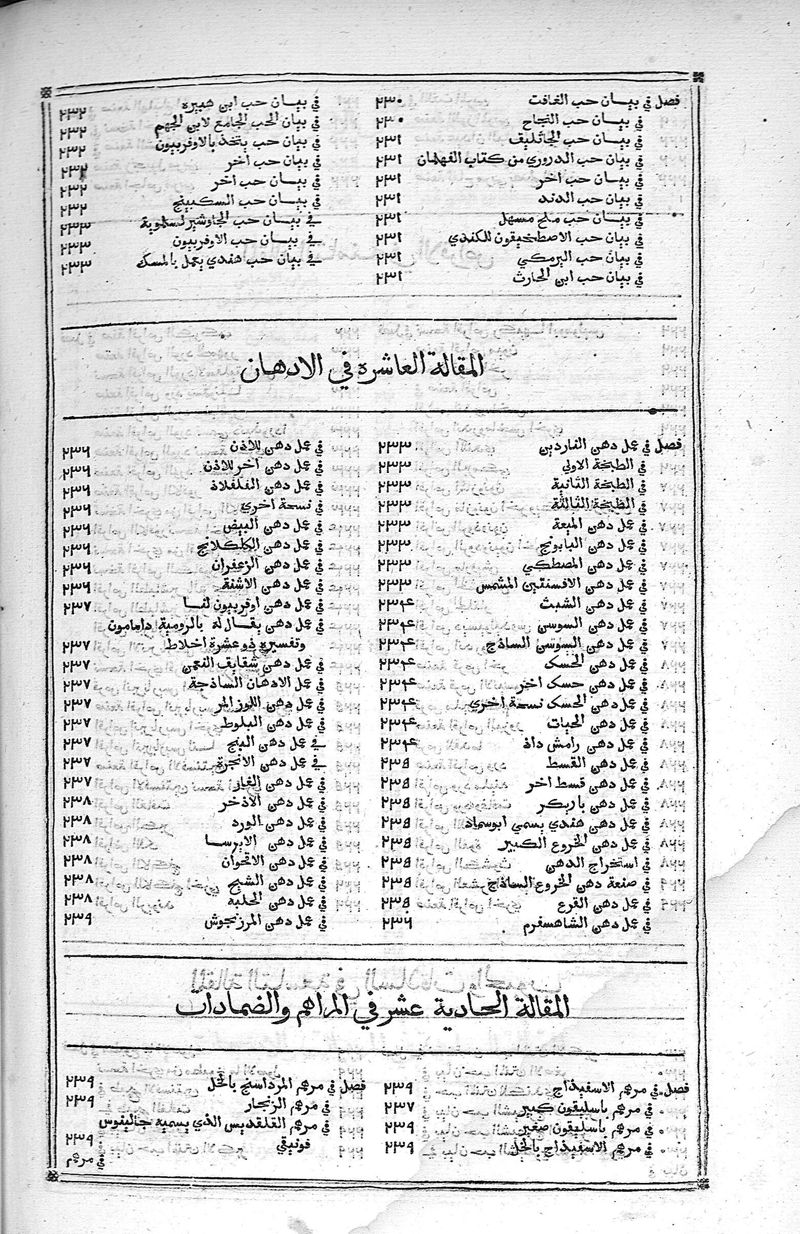 فصل في بيان حب الغافت ٢٣٠
في بيان حب النجاح ٠
في بيان حب الجاثليف ٢٣١
في بيان حب الدروري من كتاب القهلمان ٢٣١
في بيان حب اخر ٢٣١
في بيان حب الدند ٢٣١
في بيان حب ملح مسهل ٢٣١
في بيان حب الاصطخيقون للكندي ٢٣١
في بيان حب البرمكي ٢٣١
في بيان حب ابن الحارث ٢٣١
في بيان حب ابن هبيرة ٢٣٢
في بيان الحب الجامع لابن الجهم ٢٣٢
في بيان حب يتخذ بالاوفربيون ٢٣٢
في بيان حب اخر ٢٣٢
في بيان حب اخر ٢٣٢
في بيان حب السكبينج ٢٣٢
في بيان حب الجاوشير لسلموية ٢٣٣
في بيان حب الاوفربيون ٢٣٣
في بيان حب هندي يعمل بالمسك ٢٣٣
المقالة العاشره في الادهان
فصل في عمل دهن الناردين ٢٣٣
في الطبخة الاولي ٢٣٣
في الطبخة الثانية ٢٣٣
في الطبخة الثالثة ٢٣٣
في عمل دهن الميعة ٢٣٣
في عمل دهن البابونج ٢٣٣
في عمل دهن المصطكي ٢٣٣
في عمل دهن الافسنتين المشمس ٢٣٣
في عمل دهن الشبث ٢٣٤
في عمل دهن السوسن ٢٣٤
في عمل دهن السوسن الساذج ٢٣٤
في عمل دهن الحسك ٢٣٤
في عمل دهن حسك اخر ٢٣٤
في عمل دهن الحسك نسخة اخري ٢٣٤
في عمل دهن الحيات ٢٣٤
في عمل دهن رامش داد ٢٣٤
في عمل دهن القسط ٢٣٥
في عمل دهن قسط اخر ٢٣٥
في عمل دهن باربكر ٢٣٥
في عمل دهن هندي يسمي ابوسماد ٢٣٥
في عمل دهن الخروع الكبير ٢٣٥
في استخراج الدهن ٢٣٥
في صنعة دهن الخروع الساذج ٢٣٥
في عمل دهن القرع ٢٣٥
في عمل دهن الشاهسفرم ٢٣٦
في عمل دهن للاذن ٢٣٦
في عمل دهن اخر للاذن ٢٣٦
في عمل دهن الفلفلاذ ٢٣٦
في نسخة اخري ٢٣٦
في عمل دهن البيض ٢٣٦
في عمل دهن الكلكلانج ٢٣٦
في عمل دهن الزعفران ٢٣٦
في عمل دهن الاشنة ٢٣٦
في عمل دهن اوفربيون لنا ٢٣٧
في عمل دهن يقال له بالرومية دامامون
وتفسيره ذو عشرة اخلاط ٢٣٧
في عمل دهن شقايف النعمن ٢٣٧
في عمل الادهان الساذجة ٢٣٧
في عمل دهن اللوز المر ٢٣٧
في عمل دهن البلوط ٢٣٧
في عمل دهن البنج ٢٣٧
في عمل دهن الانجرة ٢٣٧
في عمل دهن الغار ٢٣٧
في عمل دهن الاذخر ٢٣٨
في عمل دهن الورد ٢٣٨
في عمل دهن الايرسا ٢٣٨
في عمل دهن الاقحوان ٢٣٨
في عمل دهن الشيح ٢٣٨
في عمل دهن الحلبة ٢٣٨
في عمل دهن المرزنجوش ٢٣٩
المقالة الحادية عشر في المراهم والضمادات
فصل في مرهم الاسفيذاج ٢٣٩
في مرهم باسليقون كبير ٢٣٧
في مرهم باسليقون صغير ٢٣٩
في مرهم الاسفيذاج بالخل ٢٣٩
فصل في مرهم المرداسنج بالخل ٢٣٩
في مرهم الزنجار ٢٣٩
في مرهم القلقديس الذي يسميه جالينوس
فونيقي ٢٣٩
في مرهم